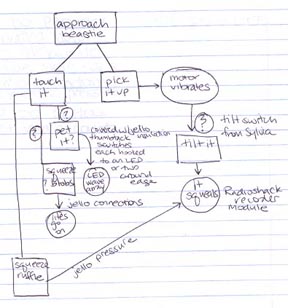 approach
beastie
touch
it
pick
it up
motor
vibrates
?
?
?
pet
it?
covered w/ jello,
thumbtack
switches
each hooked
to an LED
or two
around
edge
tilt switch
from Sylvia
tilt it
squeeze
LED
wave
array
jello connections
lites
go
on
it
squeals
Radioshack
recorder
module
squeeze
ruffle
jello pressure